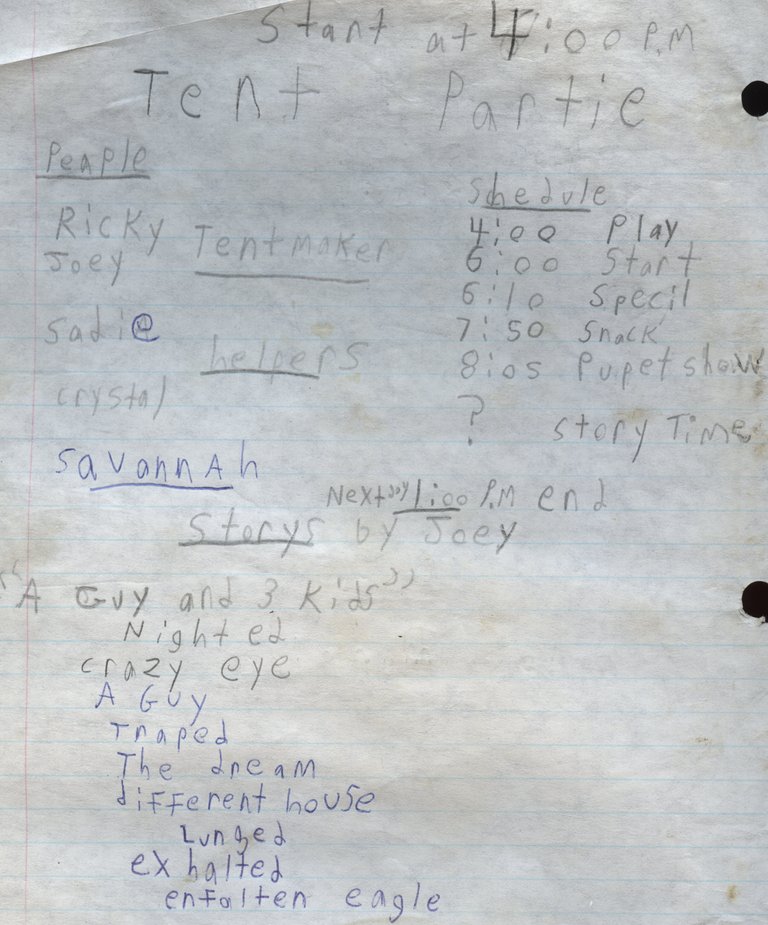 Start at 4:00 P.M
Tent Partie
Peaple
Ricky
Joey
Tentmaker
Sadie
helpers
crystal
Savannah
Schedule
4:00 Play
6:00 Start
6:10 Specil
7:50 Snack
8:05 Pupet show
? Story Time
Next day 1:00 P.M end
Storys by Joey
"A Guy and 3 Kids"
Night ed
crazy eye
A Guy
Traped
The dream
different house
Lunged
exhalted
enfalten eagle